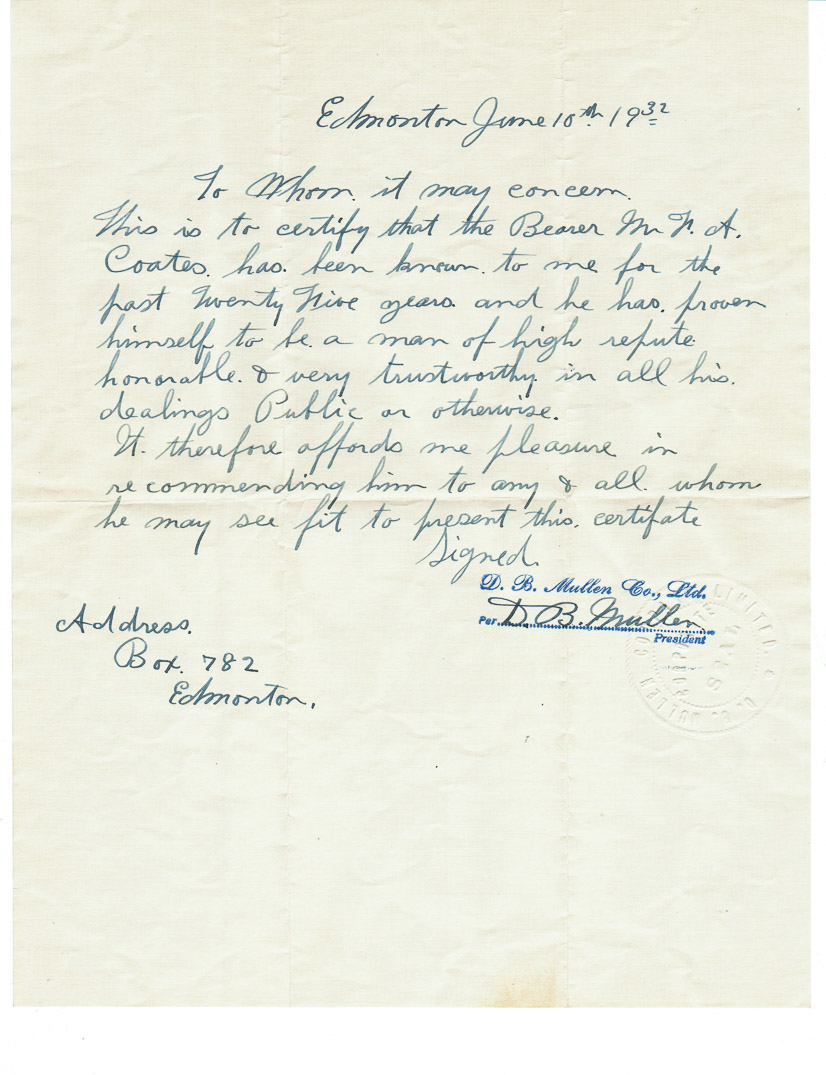 Edmonton June 10th. 1932
To Whom. it may concern.
This is to certify that the Bearer Mr F. A.
Coates. has. been known. to me for the
past Twenty Five years. and he has. proven
himself to be. a man of high repute
honorable. & very trustworthy. in all his.
dealings Public or otherwise.
It. therefore affords me pleasure in
recommending him to any & all. whom
he may see fit to present this. certifate
Signed.
D. B. Mullen Co., Ltd.
Per D. B. Mullen
President
D. B. MULLEN CO. LIMITED.
CORPORATE
SEAL
Address.
Box. 782
Edmonton.